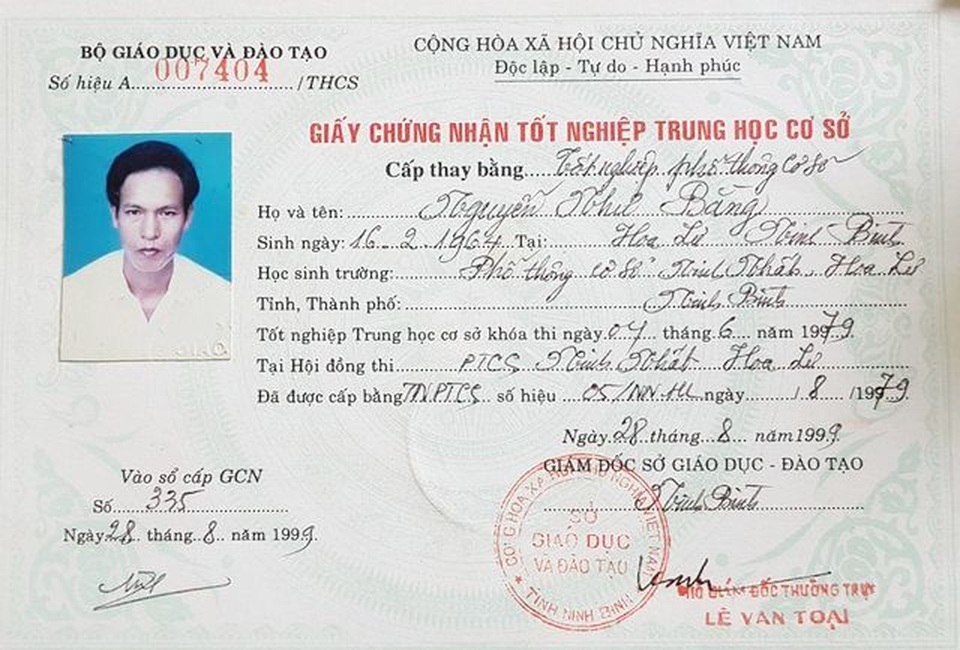 BỘ GIÁO DỤC VÀ ĐÀO TẠO
Số hiệu A 007404 /THCS
CỘNG HÒA XÃ HỘI CHỦ NGHĨA VIỆT NAM
Độc lập - Tự do - Hạnh phúc
GIẤY CHỨNG NHẬN TỐT NGHIỆP TRUNG HỌC CƠ SỞ
Cấp thay bằng Tốt nghiệp phổ thông cơ sở
Họ và tên: Nguyễn Như Bằng
Sinh ngày: 16.2.1964 Tại: Hoa Lư Ninh Bình
Học sinh trường: Phổ thông cơ sở Ninh Nhất, Hoa Lư
Tỉnh, Thành phố: Ninh Bình
Tốt nghiệp Trung học cơ sở khóa thi ngày 04 tháng 6 năm 1979
Tại Hội đồng thi PTCS Ninh Nhất Hoa Lư
Đã được cấp bằng TN.PTCS số hiệu 05/NN.HL ngày /8 /1979
Ngày 28 tháng 8 năm 1999
GIÁM ĐỐC SỞ GIÁO DỤC - ĐÀO TẠO
Ninh Bình
Vào sổ cấp GCN
Số 335
Ngày 28 tháng 8 năm 1999
CỘNG HÒA XÃ HỘI CHỦ NGHĨA VIỆT NAM
SỞ
GIÁO DỤC
VÀ ĐÀO TẠO
TỈNH NINH BÌNH
PHÓ GIÁM ĐỐC THƯỜNG TRỰC
LÊ VĂN TOẠI